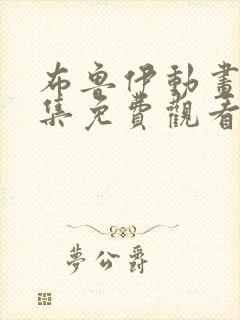 布魯伊動畫
集免費觀看
夢公爵